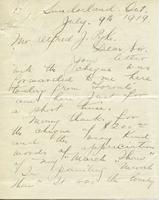 Sunderland, Ont.
July, 9th 1919.
Mr Alfred J.
Dear Sir.
Your letter
with the cheque was
forwarded to me here
to-day from Toronto,
and am here for
a short time.
Many thanks for
the cheque of $200.00
and the many kind
words of appreciation
of my "March Snow"
In painting "March
Snow" it was the lovely